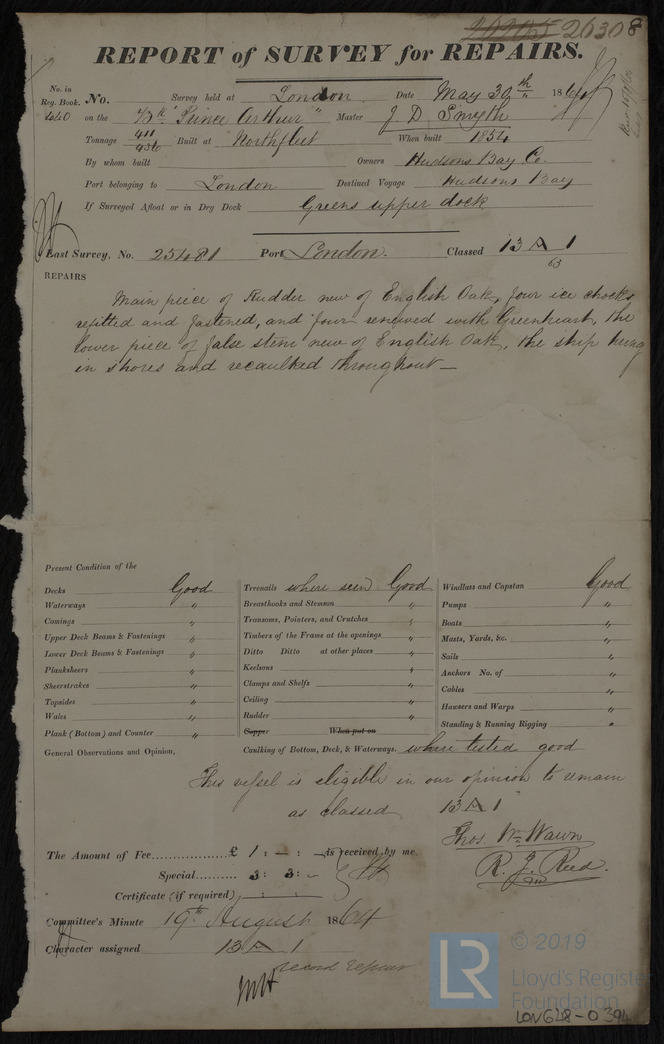 26308
REPORT of SURVEY for REPAIRS.
No. in Reg. Book. No. Survey held at London Date May 30th 1864
on the Bk "Prince Arthur" Master J. D. Smyth
Tonnage 411 Built at Northfleet When built 1854
By whom built Owners Hudsons Bay Co.
Port belonging to London Destined Voyage Hudsons Bay
If Surveyed Afloat or in Dry Dock Greens upper dock
Last Survey, No. 25481 Port London. Classed 13 A 1
63
REPAIRS
Main piece of Rudder new of English Oak, four ice chocks
refitted and fastened, and four renewed with Greenheart, the
lower piece of false stem new of English Oak, the ship hung
in shores and recaulked throughout —
Present Condition of the
Decks Good Treenails where seen Good Windlass and Capstan Good
Waterways " Breasthooks and Stemson " Pumps "
Comings " Transoms, Pointers, and Crutches " Boats "
Upper Deck Beams & Fastenings " Timbers of the Frame at the openings " Masts, Yards, &c. "
Lower Deck Beams & Fastenings " Ditto Ditto at other places " Sails "
Planksheers " Keelsons " Anchors No. of "
Sheerstrakes " Clamps and Shelfs " Cables "
Topsides " Ceiling " Hawsers and Warps "
Wales " Rudder " Standing & Running Rigging "
Plank (Bottom) and Counter " Copper When put on
General Observations and Opinion, Caulking of Bottom, Deck, & Waterways. where tested good
This vessel is eligible in our opinion to remain
as classed 13 A 1
Thos. Wm Wawn
R. J. Reed.
The Amount of Fee £ 1 : – : – is received by me
Special 3 : 3 : –
Certificate (if required) : :
Committee's Minute 19th August 1864
Character assigned 13 A 1
record repairs
LR
© 2019
Lloyd's Register
Foundation
LON648-0394